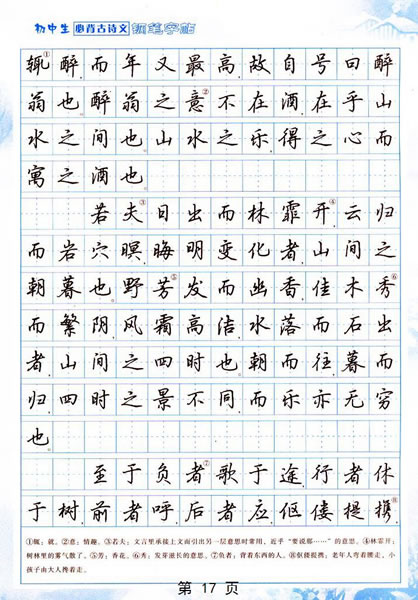 初中生 必背古诗文 钢笔字帖
辄①醉，而年又最高，故自号曰醉
翁也。醉翁之意②不在酒，在乎山
水之间也。山水之乐，得之心而
寓之酒也。
若夫③日出而林霏开④，云归
而岩穴暝，晦明变化者，山间之
朝暮也。野芳⑤发而幽香，佳木秀⑥
而繁阴，风霜高洁，水落而石出
者，山间之四时也。朝而往，暮而
归，四时之景不同，而乐亦无穷
也。
至于负者⑦歌于途，行者休
于树，前者呼，后者应，伛偻提携⑧，
①辄：就。②意：情趣。③若夫：文言里承接上文而引出另一层意思时常用，近乎“要说那……”的意思。④林霏开：
树林里的雾气散了。⑤芳：香花。⑥秀：发芽滋长的意思。⑦负者：背着东西的人。⑧伛偻提携：老年人弯着腰走，小
孩子由大人搀着走。
第 17 页